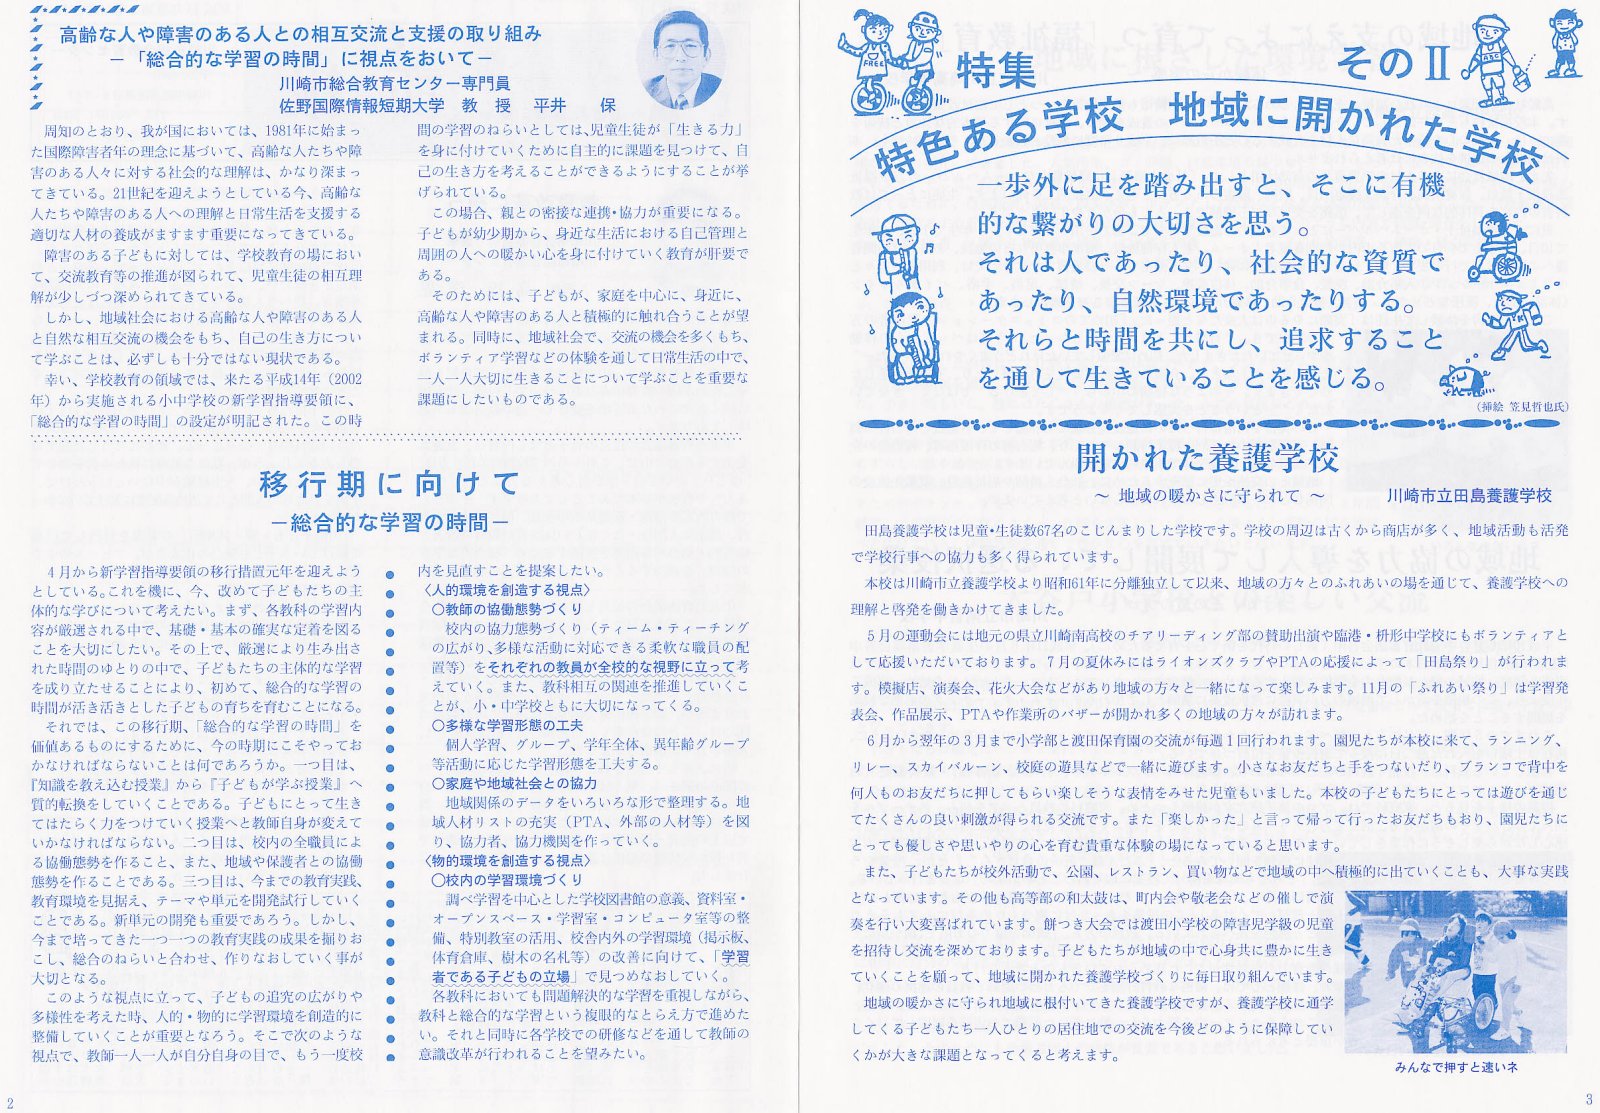 高齢な人や障害のある人との相互交流と支援の取り組み
－「総合的な学習の時間」に視点をおいて－
川崎市総合教育センター専門員
佐野国際情報短期大学　教　授　平井　　保
　周知のとおり、我が国においては、1981年に始まっ
た国際障害者年の理念に基づいて、高齢な人たちや障
害のある人々に対する社会的な理解は、かなり深まっ
てきている。21世紀を迎えようとしている今、高齢な
人たちや障害のある人への理解と日常生活を支援する
適切な人材の養成がますます重要になってきている。
　障害のある子どもに対しては、学校教育の場におい
て、交流教育等の推進が図られて、児童生徒の相互理
解が少しづつ深められてきている。
　しかし、地域社会における高齢な人や障害のある人
と自然な相互交流の機会をもち、自己の生き方につい
て学ぶことは、必ずしも十分ではない現状である。
　幸い、学校教育の領域では、来たる平成14年（2002
年）から実施される小中学校の新学習指導要領に、
「総合的な学習の時間」の設定が明記された。この時
間の学習のねらいとしては、児童生徒が「生きる力」
を身に付けていくために自主的に課題を見つけて、自
己の生き方を考えることができるようにすることが挙
げられている。
　この場合、親との密接な連携・協力が重要になる。
子どもが幼少期から、身近な生活における自己管理と
周囲の人への暖かい心を身に付けていく教育が肝要で
ある。
　そのためには、子どもが、家庭を中心に、身近に、
高齢な人や障害のある人と積極的に触れ合うことが望
まれる。同時に、地域社会で、交流の機会を多くもち、
ボランティア学習などの体験を通して日常生活の中で、
一人一人大切に生きることについて学ぶことを重要な
課題にしたいものである。
移行期に向けて
－総合的な学習の時間－
　４月から新学習指導要領の移行措置元年を迎えよう
としている。これを機に、今、改めて子どもたちの主
体的な学びについて考えたい。まず、各教科の学習内
容が厳選される中で、基礎・基本の確実な定着を図る
ことを大切にしたい。その上で、厳選により生み出さ
れた時間のゆとりの中で、子どもたちの主体的な学習
を成り立たせることにより、初めて、総合的な学習の
時間が活き活きとした子どもの育ちを育むことになる。
　それでは、この移行期、「総合的な学習の時間」を
価値あるものにするために、今の時期にこそやってお
かなければならないことは何であろうか。一つ目は、
『知識を教え込む授業』から『子どもが学ぶ授業』へ
質的転換をしていくことである。子どもにとって生き
てはたらく力をつけていく授業へと教師自身が変えて
いかなければならない。二つ目は、校内の全職員によ
る協働態勢を作ること、また、地域や保護者との協働
態勢を作ることである。三つ目は、今までの教育実践、
教育環境を見据え、テーマや単元を開発試行していく
ことである。新単元の開発も重要であろう。しかし、
今まで培ってきた一つ一つの教育実践の成果を掘りお
こし、総合のねらいと合わせ、作りなおしていく事が
大切となる。
　このような視点に立って、子どもの追究の広がりや
多様性を考えた時、人的・物的に学習環境を創造的に
整備していくことが重要となろう。そこで次のような
視点で、教師一人一人が自分自身の目で、もう一度校
内を見直すことを提案したい。
〈人的環境を創造する視点〉
○教師の協働態勢づくり
　校内の協力態勢づくり（ティーム・ティーチング
の広がり、多様な活動に対応できる柔軟な職員の配
置等）をそれぞれの教員が全校的な視野に立って考
えていく。また、教科相互の関連を推進していくこ
とが、小・中学校ともに大切になってくる。
○多様な学習形態の工夫
　個人学習、グループ、学年全体、異年齢グループ
等活動に応じた学習形態を工夫する。
○家庭や地域社会との協力
　地域関係のデータをいろいろな形で整理する。地
域人材リストの充実（PTA、外部の人材等）を図
り、協力者、協力機関を作っていく。
〈物的環境を創造する視点〉
○校内の学習環境づくり
　調べ学習を中心とした学校図書館の意義、資料室・
オープンスペース・学習室・コンピュータ室等の整
備、特別教室の活用、校舎内外の学習環境（掲示板、
体育倉庫、樹木の名札等）の改善に向けて、「学習
者である子どもの立場」で見つめなおしていく。
　各教科においても問題解決的な学習を重視しながら、
教科と総合的な学習という複眼的なとらえ方で進めた
い。それと同時に各学校での研修などを通して教師の
意識改革が行われることを望みたい。
2
特集
そのⅡ
FREE
ABC
特色ある学校　地域に開かれた学校
一歩外に足を踏み出すと、そこに有機
的な繋がりの大切さを思う。
それは人であったり、社会的な資質で
あったり、自然環境であったりする。
それらと時間を共にし、追求すること
を通して生きていることを感じる。
（挿絵 笠見哲也氏）
開かれた養護学校
～ 地域の暖かさに守られて ～　川崎市立田島養護学校
　田島養護学校は児童・生徒数67名のこじんまりした学校です。学校の周辺は古くから商店が多く、地域活動も活発
で学校行事への協力も多く得られています。
　本校は川崎市立養護学校より昭和61年に分離独立して以来、地域の方々とのふれあいの場を通じて、養護学校への
理解と啓発を働きかけてきました。
　５月の運動会には地元の県立川崎南高校のチアリーディング部の賛助出演や臨港・枡形中学校にもボランティアと
して応援いただいております。７月の夏休みにはライオンズクラブやPTAの応援によって「田島祭り」が行われま
す。模擬店、演奏会、花火大会などがあり地域の方々と一緒になって楽しみます。11月の「ふれあい祭り」は学習発
表会、作品展示、PTAや作業所のバザーが開かれ多くの地域の方々が訪れます。
　６月から翌年の３月まで小学部と渡田保育園の交流が毎週１回行われます。園児たちが本校に来て、ランニング、
リレー、スカイバルーン、校庭の遊具などで一緒に遊びます。小さなお友だちと手をつないだり、ブランコで背中を
何人ものお友だちに押してもらい楽しそうな表情をみせた児童もいました。本校の子どもたちにとっては遊びを通じ
てたくさんの良い刺激が得られる交流です。また「楽しかった」と言って帰って行ったお友だちもおり、園児たちに
とっても優しさや思いやりの心を育む貴重な体験の場になっていると思います。
　また、子どもたちが校外活動で、公園、レストラン、買い物などで地域の中へ積極的に出ていくことも、大事な実践
となっています。その他も高等部の和太鼓は、町内会や敬老会などの催しで演
奏を行い大変喜ばれています。餅つき大会では渡田小学校の障害児学級の児童
を招待し交流を深めております。子どもたちが地域の中で心身共に豊かに生き
ていくことを願って、地域に開かれた養護学校づくりに毎日取り組んでいます。
　地域の暖かさに守られ地域に根付いてきた養護学校ですが、養護学校に通学
してくる子どもたち一人ひとりの居住地での交流を今後どのように保障してい
くかが大きな課題となってくると考えます。
みんなで押すと速いネ
3